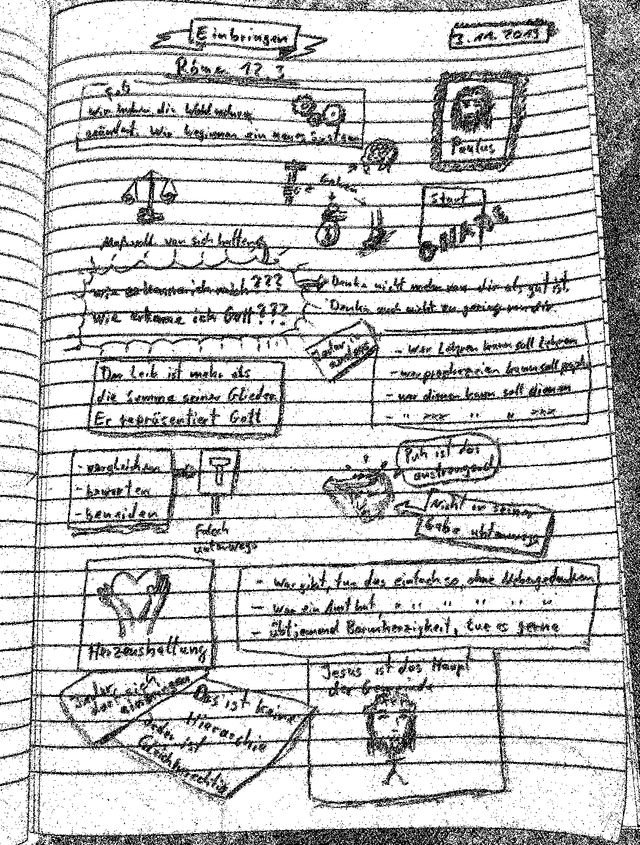 Einbringen
3.11.2019
Römer 12 3
geändert. Wir beginnen ein neues System
Paulus
Gaben
Start
Maßvoll von sich halten
wie erkenne ich mich ???
wie erkenne ich Gott ???
Denke nicht mehr von dir als gut ist.
Denke auch nicht zu gering von dir.
Jeder ist anders
- wer Lehren kann soll Lehren
- wer prophezeien kann soll proph.
- wer dienen kann soll dienen
- " xxx " " xxx
Der Leib ist mehr als
die Summe seiner Glieder
Er repräsentiert Gott
- vergleichen
- bewerten
- beneiden
Falsch
unterwegs
Puh ist das
anstrengend
Nicht in seiner
Gabe unterwegs
Herzenshaltung
- Wer gibt, tue das einfach so, ohne Nebengedanken
- wer ein Amt hat, " " " " " "
- übt jemand Barmherzigkeit, tue es gerne
Jeder, sich
dort einbringen
Das ist keine
Hierarchie
jeder ist
Gleichberechtigt
Jesus ist das Haupt
der Gemeinde